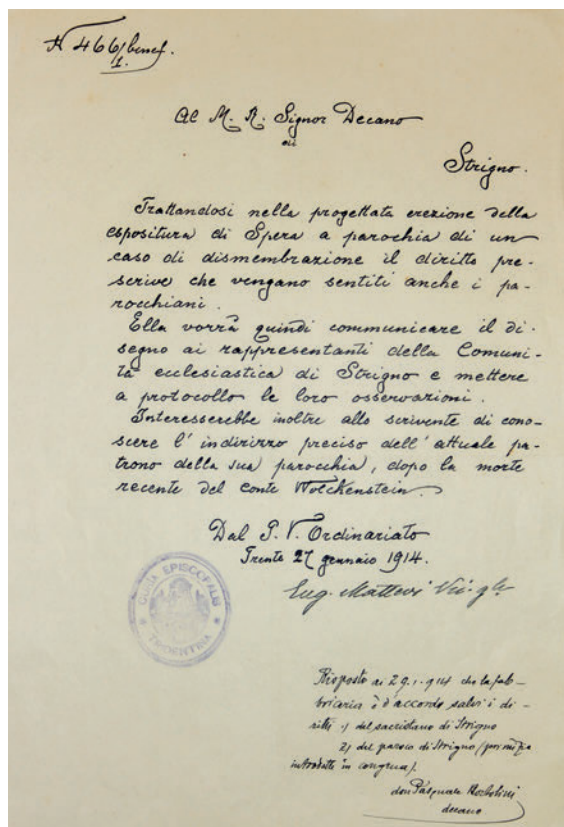 N 466/benef.
1.
Al M. R. Signor Decano
di
Strigno.
Trattandosi nella progettata erezione della
espositura di Spera a parochia di un
caso di dismembrazione il diritto pre-
scrive che vengano sentiti anche i pa-
rocchiani.
Ella vorrà quindi communicare il di-
segno ai rappresentanti della Comuni-
tà ecclesiastica di Strigno e mettere
a protocollo le loro osservazioni.
Interesserebbe inoltre allo scrivente di cono-
scere l'indirizzo preciso dell'attuale pa-
trono della sua parochia, dopo la morte
recente del conte Wolckenstein.
Dal P. V. Ordinariato
Trento 27 gennaio 1914.
Eug. Mattevi Vic. gle
CURIA EPISCOPALIS
TRIDENTINA
Risposto ai 29.1.914 che la fab-
briceria è d'accordo salvi i di-
ritti 1) del sacristano di Strigno
2) del paroco di Strigno (
introdotte in congrua).
don Pasquale
decano